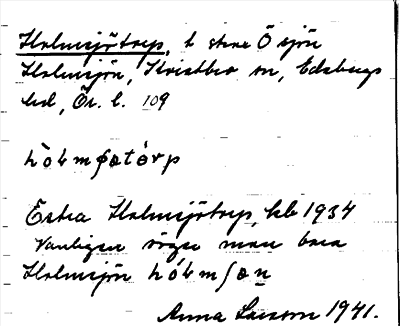 Holmsjötorp, t. stora Ö sjön
Holmsjön, Kvistbro sn, Edsbergs
hd, Ör. l. 109
hòlmʃøtòrp
Extra Holmsjötorp, kb 1934
Vanligen säges man bara
Holmsjön hólmʃøn
Anna Larsson 1941.